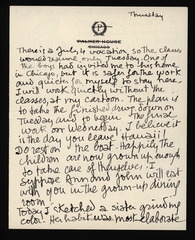 Thursday
PALMER HOUSE
CHICAGO
There is a July 4 vacation so the class
would resume only Tuesday. One of
the boys had invited me to his home
in Chicago, but it is safer for the work
and quieter for myself to stay here.
I will work quickly without the
classes, at my cartoon. The plan is
to take the finished down on
Tuesday and to begin the final
work on Wednesday. I believe it
is the day you leave Hawaii!
Do rest on the boat. Happily the
children are now grown up enough
to take care of themselves. I
suppose Ann and John will eat
with you in the grown-up dining
room
Today I sketched a sister grinding
color. Her habit was most elaborate